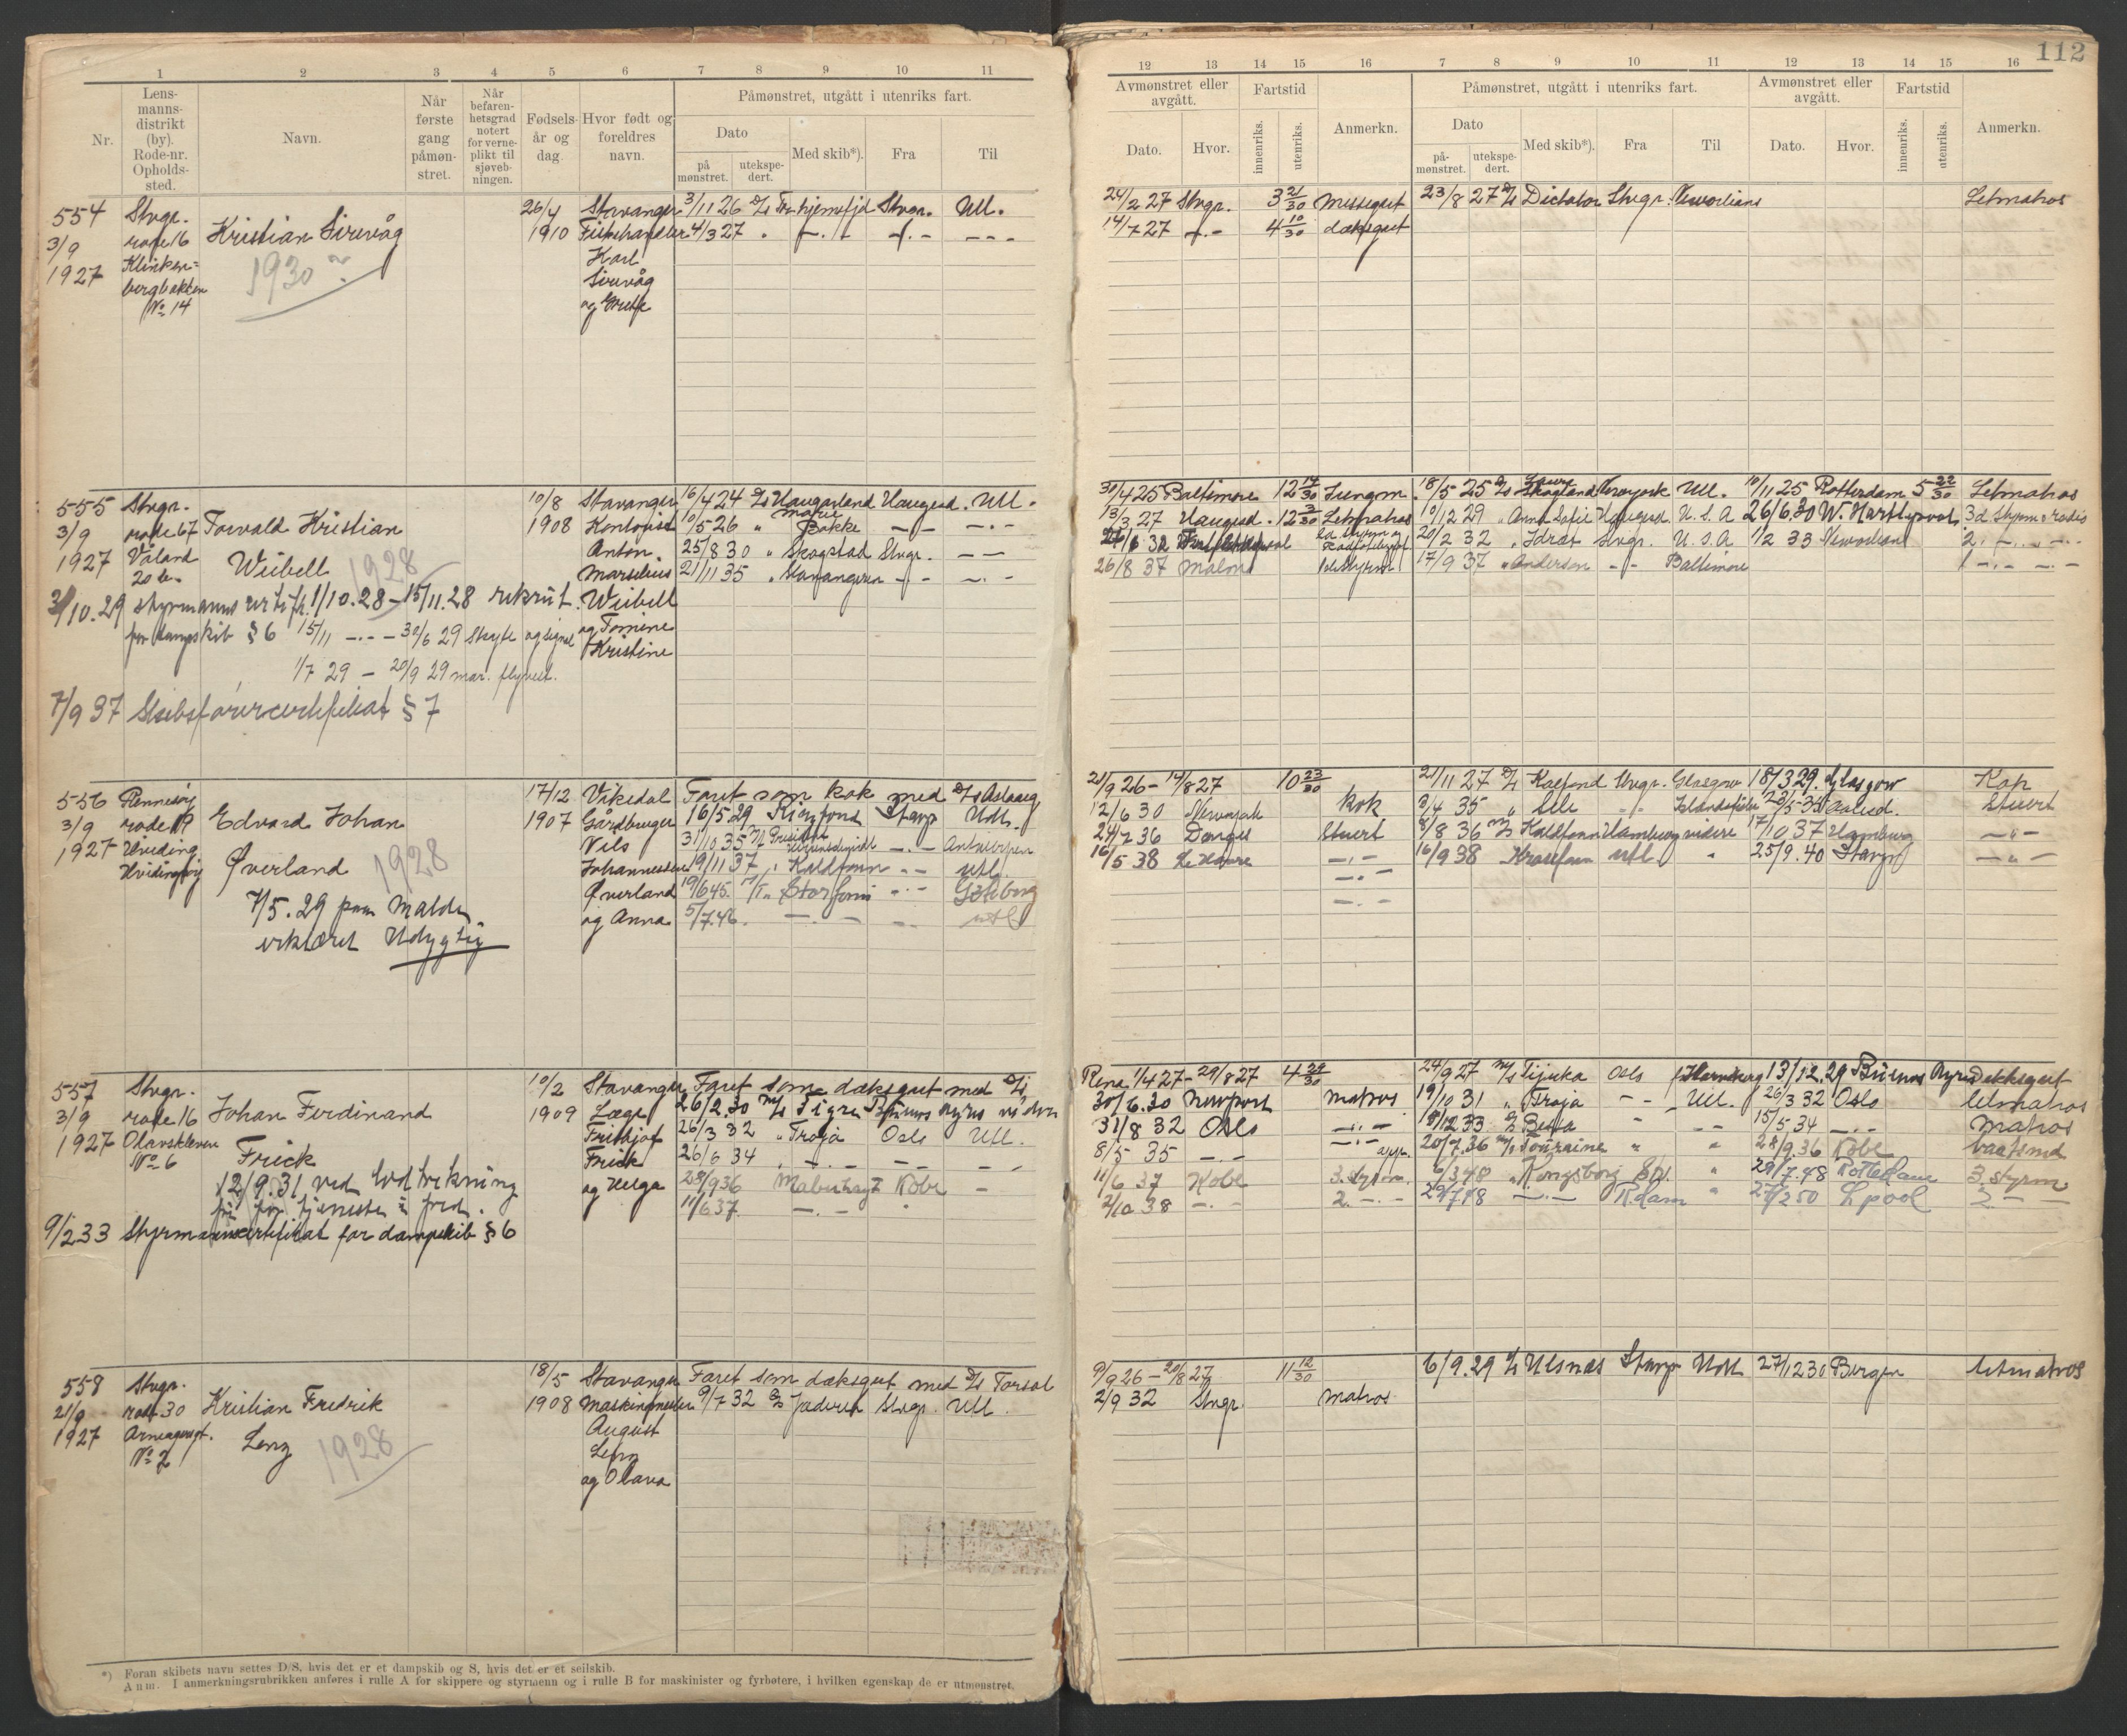 112
1 2 3 4 5 6 7 8 9 10 11
Nr.
Lens-
manns-
distrikt
(by).
Rode-nr.
Opholds-
sted.
Navn.
Når
første
gang
påmøn-
stret.
Når
befaren-
hetsgrad
notert
for verne-
plikt til
sjøveb-
ningen.
Fødsels-
år og
dag.
Hvor født og
foreldres
navn.
Påmønstret, utgått i utenriks fart.
Dato
på
mønstret.
utekspe-
dert.
Med skib*).
Fra
Til
554
3/9
1927
Stvgr.
rode 16
Klinken=
bergbakken
No 14
Kristian Sirevåg
1930
26/4
1910
Stavanger
Fiskehandler
Karl
Sirevåg
og
3/11 26 D/s Stvgr. Utl.
4/3 27 " —.— —.— ———
555
3/9
1927
Stvgr.
rode 67
Våland
Torvald Kristian
Weibell
1928
10/8
1908
Stavanger
Kontorist
Anton
Marselius
Weibell
og Tomine
Kristine
16/4 24 D/s Haugarland Haugesd. Utl.
10/5 26 " Marie Bakke —.— —.—
25/8 30 " Skogstad Stvgr. ——
21/11 35 " Stavangeren —.— —.—
3/10.29 styrmanns certifk. 1/10.28 – 15/11.28 rekrut.
for dampskib § 6 15/11 —.— – 30/6 29 Skyte og signal
1/7 29 – 20/9 29 mar. flyvest.
7/9 37 Skibsførercertifikat § 7
556
3/9
1927
Rennesøy
rode 19
Hviding
Hvidingsøy
Edvard Johan
Øverland
1928
7/5.29 paa Malde
erklæret Udygtig
17/12
1907
Vikedal
Gårdbruger
Nils
Johannessen
Øverland
og Anna
Faret som kok med D/s Aslaug
16/5 29 Ringfond Stavgr Udl.
31/10 35 M/T President —.— Antwerpen
19/11 37 " Koldfonn —.— utl.
19/6 45. M/T. Storfonn " — Gøteborg
5/7.46. —.— — utl
557
3/9
1927
Stvgr.
rode 16
Olavskleven
No 6
Johan Ferdinand
Frick
12/9.31 ved lodtrekning
fri for tjeneste i fred.
9/2 33 Styrmannscertifikat for dampskib § 6
10/2
1909
Stavanger
Læge
Frithjof
Frick
og Helga
Faret som dæksgut med D/s
26/2.30 M/s Tigre Buenos Ayres videre
26/3 32 " Troja Oslo Utl.
26/6 34 " —.— —— —
28/9 36 Kobe —
11/6 37. —.— "
558
21/9
1927
Stvgr.
rode 30
No 2
Kristian Fredrik
Lenz
1928
18/5
1908
Stavanger
Maskinmester
August
Lenz
og Olava
Faret som dæksgut med D/s Torsal
9/7 32 D/s Jæderen Stvgr. Utl.
*) Foran skibets navn settes D/S, hvis det er et dampskib og S, hvis det er et seilskib.
Anm. I anmerkningsrubrikken anføres i rulle A for skippere og styrmenn og i rulle B for maskinister og fyrbøtere, i hvilken egenskap de er utmønstret.
12 13 14 15 16 7 8 9 10 11 12 13 14 15 16
Avmønstret eller
avgått.
Dato.
Hvor.
Fartstid
innenriks.
utenriks.
Anmerkn.
Påmønstret, utgått i utenriks fart.
Dato
på-
mønstret.
utekspe-
dert.
Med skib*).
Fra
Til
Avmønstret eller
avgått.
Dato.
Hvor.
Fartstid
innenriks.
utenriks.
Anmerkn.
24/2 27 Stvgr. 3 21/30 Messegut 23/8 27 D/s Dictator Stvgr. Neworlians Letmatros
14/7 27 —.— 4 10/30 dæksgut
30/4 25 Baltimore 12 14/30 Jungm. 18/5 25 D/s Skogland Newyork Utl. 10/11 25 Rotterdam 5 22/30 Letmatros
13/3 27 Haugesd. 12 3/30 Letmatros 10/12 29 " Anna Sofie Haugesd. U.S.A 26/6.30 W. Hartlepool 3d Styrm. o radio
20/2 32 " Idræt Stvgr. U.S.A. 1/2 33 Neworleans 2. —.— —.—
26/8 37 Malmø 17/9 37 " Anderson —.— Baltimore 1 —.— —.—
21/9 26 – 14/8 27 10 23/30 21/11 27 D/s Stvgr. Glasgow 18/3 29. Glasgow Kok
12/6 30 Newyork Kok 3/4 35 " —.— Stuert
24/7 36 Stuert 8/8 36 M/s Koldfonn Hamburg videre 17/10 37 Hamburg —"—
16/5 38 Le Havre —.— 16/9 38 utl " 25/9.40 Stavgr —"—
—.—
—.—
Rena 1/4 27 – 29/8 27 4 29/30 24/9 27 M/s Tijuka Oslo 13/12.29 Buenos Ayres Dækksgut
30/6.30 Newport Matros 19/10 31 " Troja —— Utl. 26/3 32 Oslo Letmatros
31/8 32 Oslo —.— 19/12 33 " —— 15/5 34 —.— Matros
8/5 35 —.— —.— 20/7.36 M/s Touraine " " 28/9.36 Kobe baatsmd
11/6 37 Kobe 3. styrm. 6/3 48 " Kongsborg " 29/7.48 Rotterdam 3. styrm
2/10 38 —.— 2. —.— 29/7 48 —.— R.dam " 27/2 50 L.pool 2. —
9/9 26 – 20/8 27 11 12/30 6/9.29 D/s Ulsnæs Stavgr Udl. 27/12 30 Bergen Letmatros
2/9 32 Stvgr. Matros